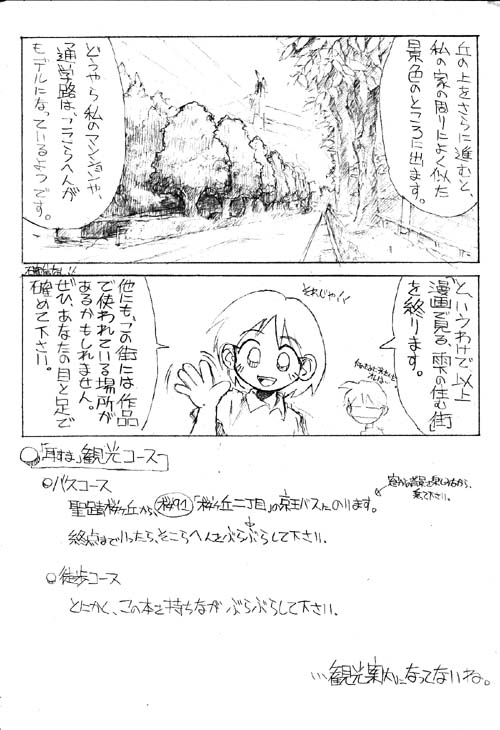 丘の上をさらに進むと、
私の家の周りによく似た
景色のところに出ます。
どうやら私のマンションや
通学路は、ここらへんが
モデルになっているようです。
と、いうわけで以上
「漫画で見る、雫の住む街」
を終ります。
それじゃ!!
他にも、この街には作品
で使われている場所が
あるかもしれません。
ぜひ、あなたの目と足で
確めて下さい。
○「耳すま」観光コース
○バスコース
聖蹟桜ヶ丘から、桜91「桜ヶ丘二丁目」の京王バスにのります。
終点まで行ったら、そこらへんをぶらぶらして下さい。
○徒歩コース
とにかく、この本を持ちながらぶらぶらして下さい。
…観光案内になってないね。